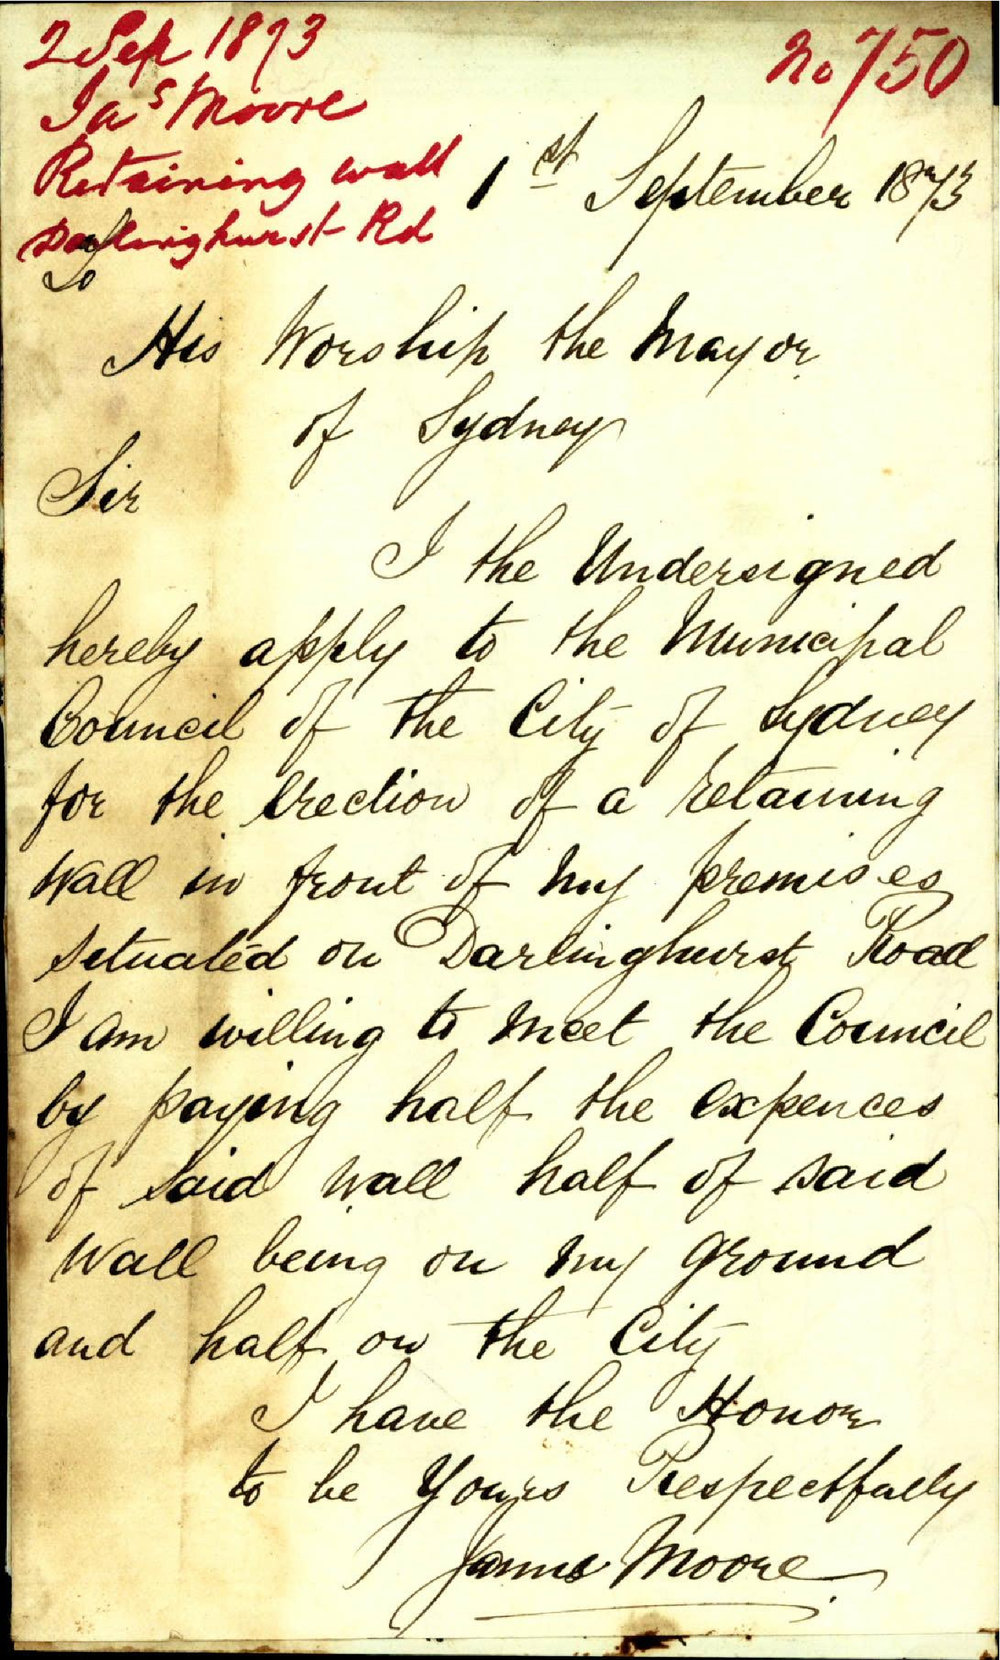 2 Sep 1873
Jas Moore
Retaining wall
Darlinghurst Rd
No 750
1st September 1873
To
His Worship the Mayor
of Sydney
Sir
I the Undersigned
hereby apply to the Municipal
Council of the City of Sydney
for the Erection of a retaining
Wall in front of my premises
situated on Darlinghurst Road
I am willing to meet the Council
by paying half the expences
of said Wall half of said
Wall being on my ground
and half on the City
I have the Honor
to be Yours Respectfully
James Moore